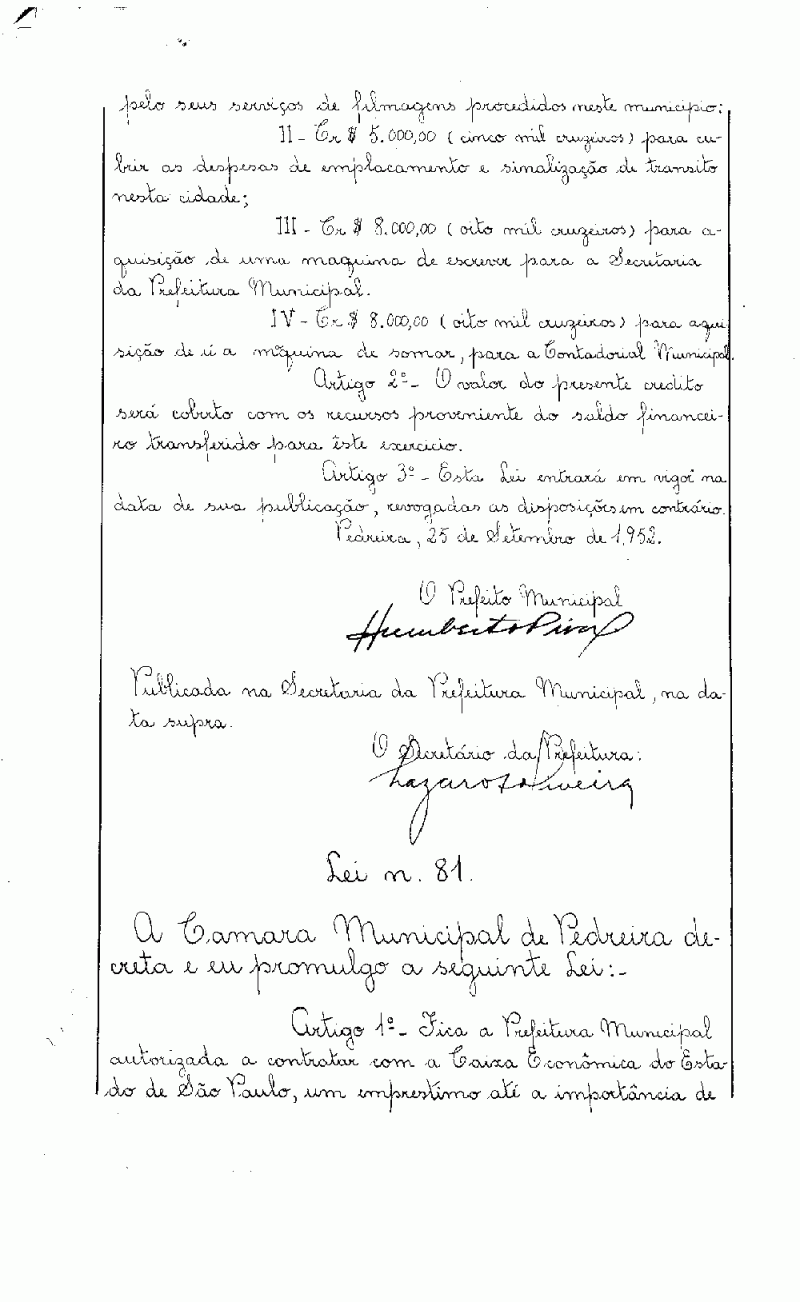 pelo seus serviços de filmagens procedidos neste municipio;
II - Cr $ 5.000,00 (cinco mil cruzeiros) para cu-
brir as despesas de emplacamento e sinalização de transito
nesta cidade;
III - Cr $ 8.000,00 (oito mil cruzeiros) para a-
quisição de uma maquina de escrever para a Secretaria
da Prefeitura Municipal.
IV - Cr $ 8.000,00 (oito mil cruzeiros) para aqui
sição de ú a máquina de somar, para a Contadorial Municipal.
Artigo 2º - O valor do presente credito
será coberto com os recursos proveniente do saldo financei-
ro transferido para êste exercicio.
Artigo 3º - Esta Lei entrará em vigor na
data de sua publicação, revogadas as disposições em contrário.
Pedreira, 25 de Setembro de 1.952.
O Prefeito Municipal
Humberto Piva
Publicada na Secretaria da Prefeitura Municipal, na da-
ta supra.
O Secretário da Prefeitura:
Lei n. 81.
A Camara Municipal de Pedreira de-
creta e eu promulgo a seguinte Lei:-
Artigo 1º - Fica a Prefeitura Municipal
autorizada a contratar com a Caixa Econômica do Esta-
do de São Paulo, um emprestimo até a importância de